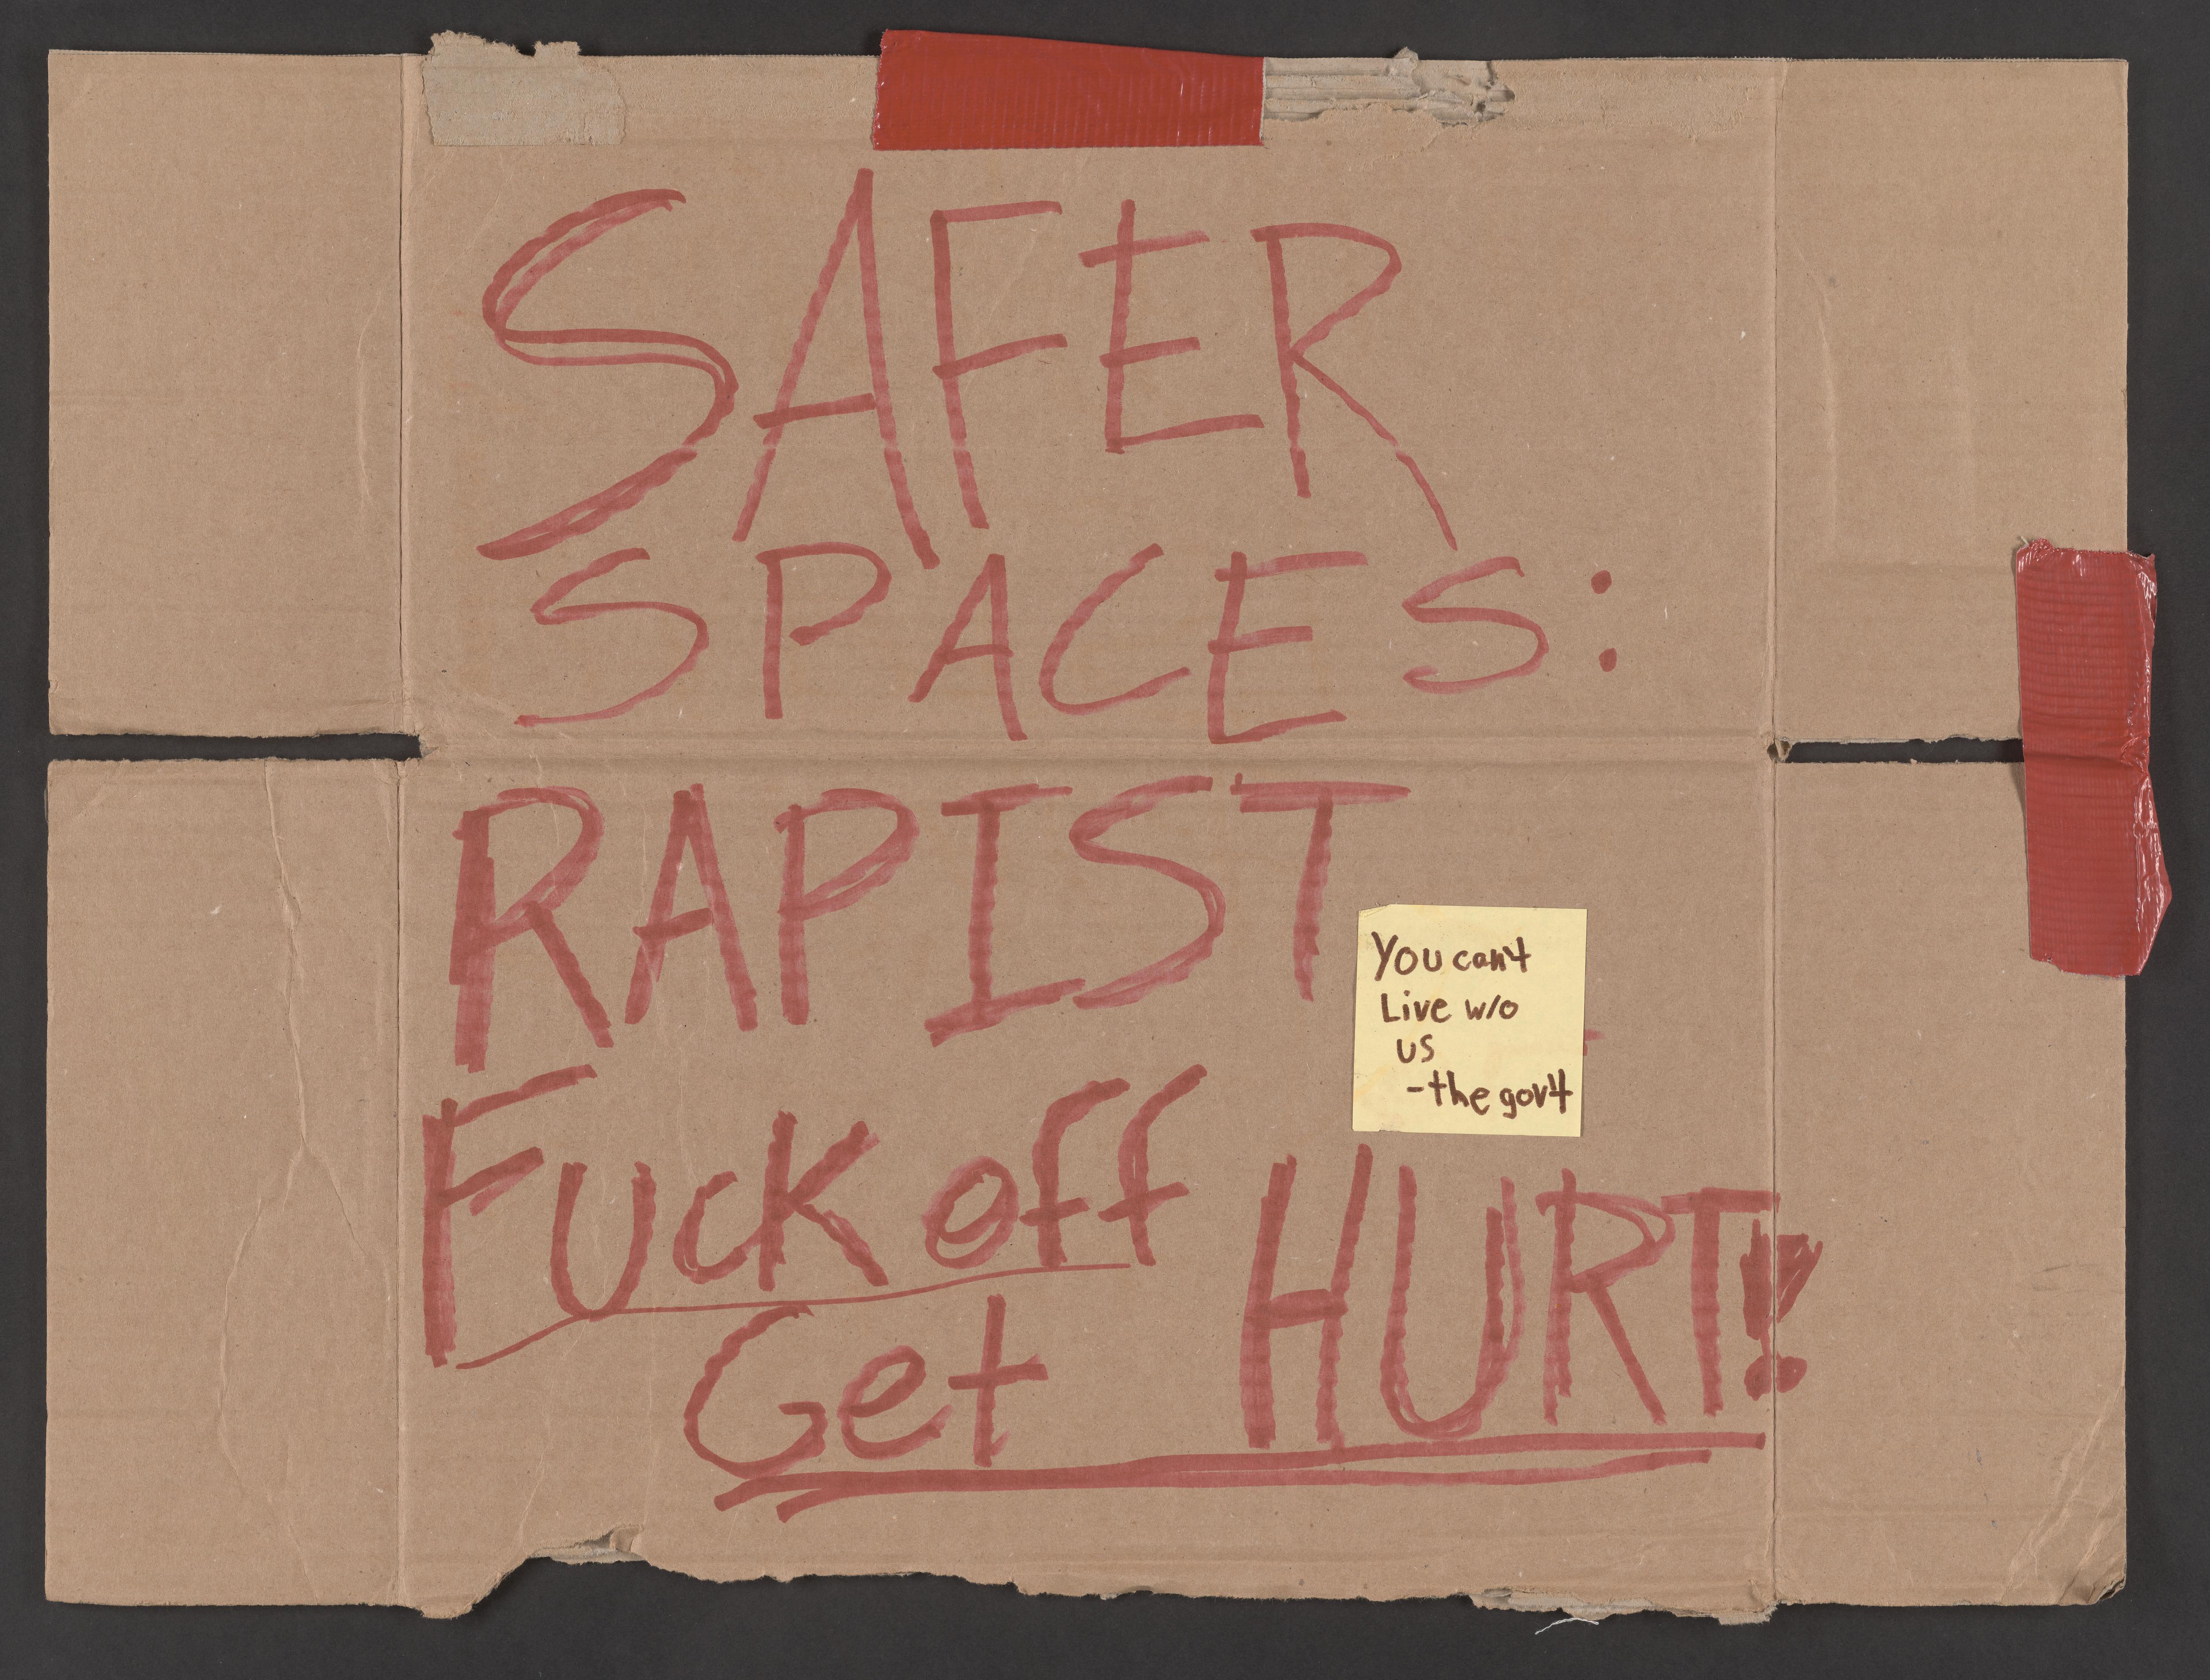 SAFER
SPACES:
RAPIST
Fuck off
Get HURT!!
You can't
Live w/o
us
-the gov't